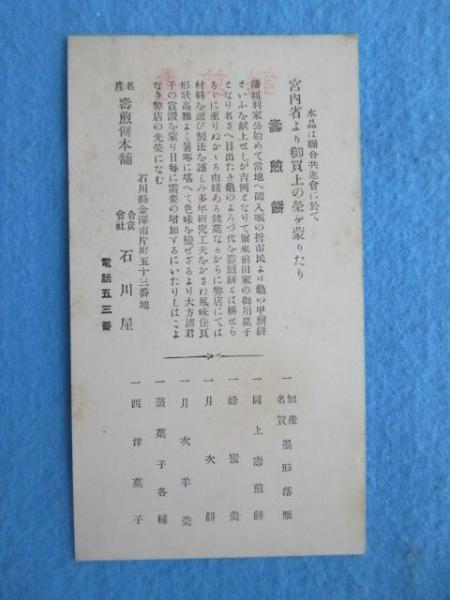 本品は聯合共進會に於て
宮內省より御買上の榮を蒙りたり
壽煎餅
藩祖利家公始めて當地へ御入城の折市民より龜の甲煎餅
といふを献上せしが吉例となりて爾來前田家の御用菓子
となり名さへ目出たき龜のよろづ代を壽煎餅とは稱せら
るゝに至りぬかゝる由緖ある銘菓なるからに弊店にては
材料を選び製法を謹しみ多年硏究工夫をかさね風味佳良
形狀高雅よく暑寒に堪へて色味を變ぜざるより大方諸君
子の賞讚を蒙り日每に需要の增加するにいたりしはこよ
なき弊店の光榮になむ
名產 壽煎餅本舖
石川縣金澤市片町五十三番地
合資會社 石川屋
電話五三番
一加賀名產 墨形落雁
一同上壽煎餅
一蜂蜜羹
一月次餅
一月次羊羹
一蒸菓子各種
一西洋菓子